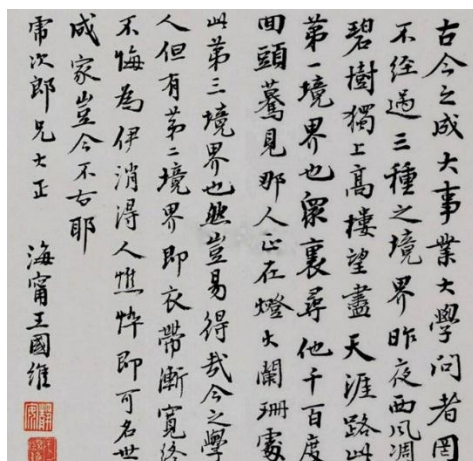 古今之成大事業大學問者罔
不經過三種之境界昨夜西風凋
碧樹獨上高樓望盡天涯路此
第一境界也眾裏尋他千百度
回頭驀見那人正在燈火闌珊處
此第三境界也然豈易得哉今之學
人但有第二境界即衣帶漸寬終
不悔為伊消得人憔悴即可名世
成家豈今不古耶
常次郎兄大正
海甯王國維